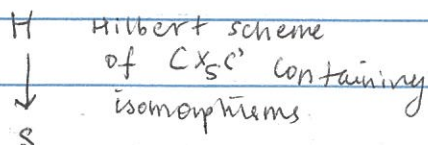 H Hilbert scheme
of C×ₛC' containing
isomorphisms.
S